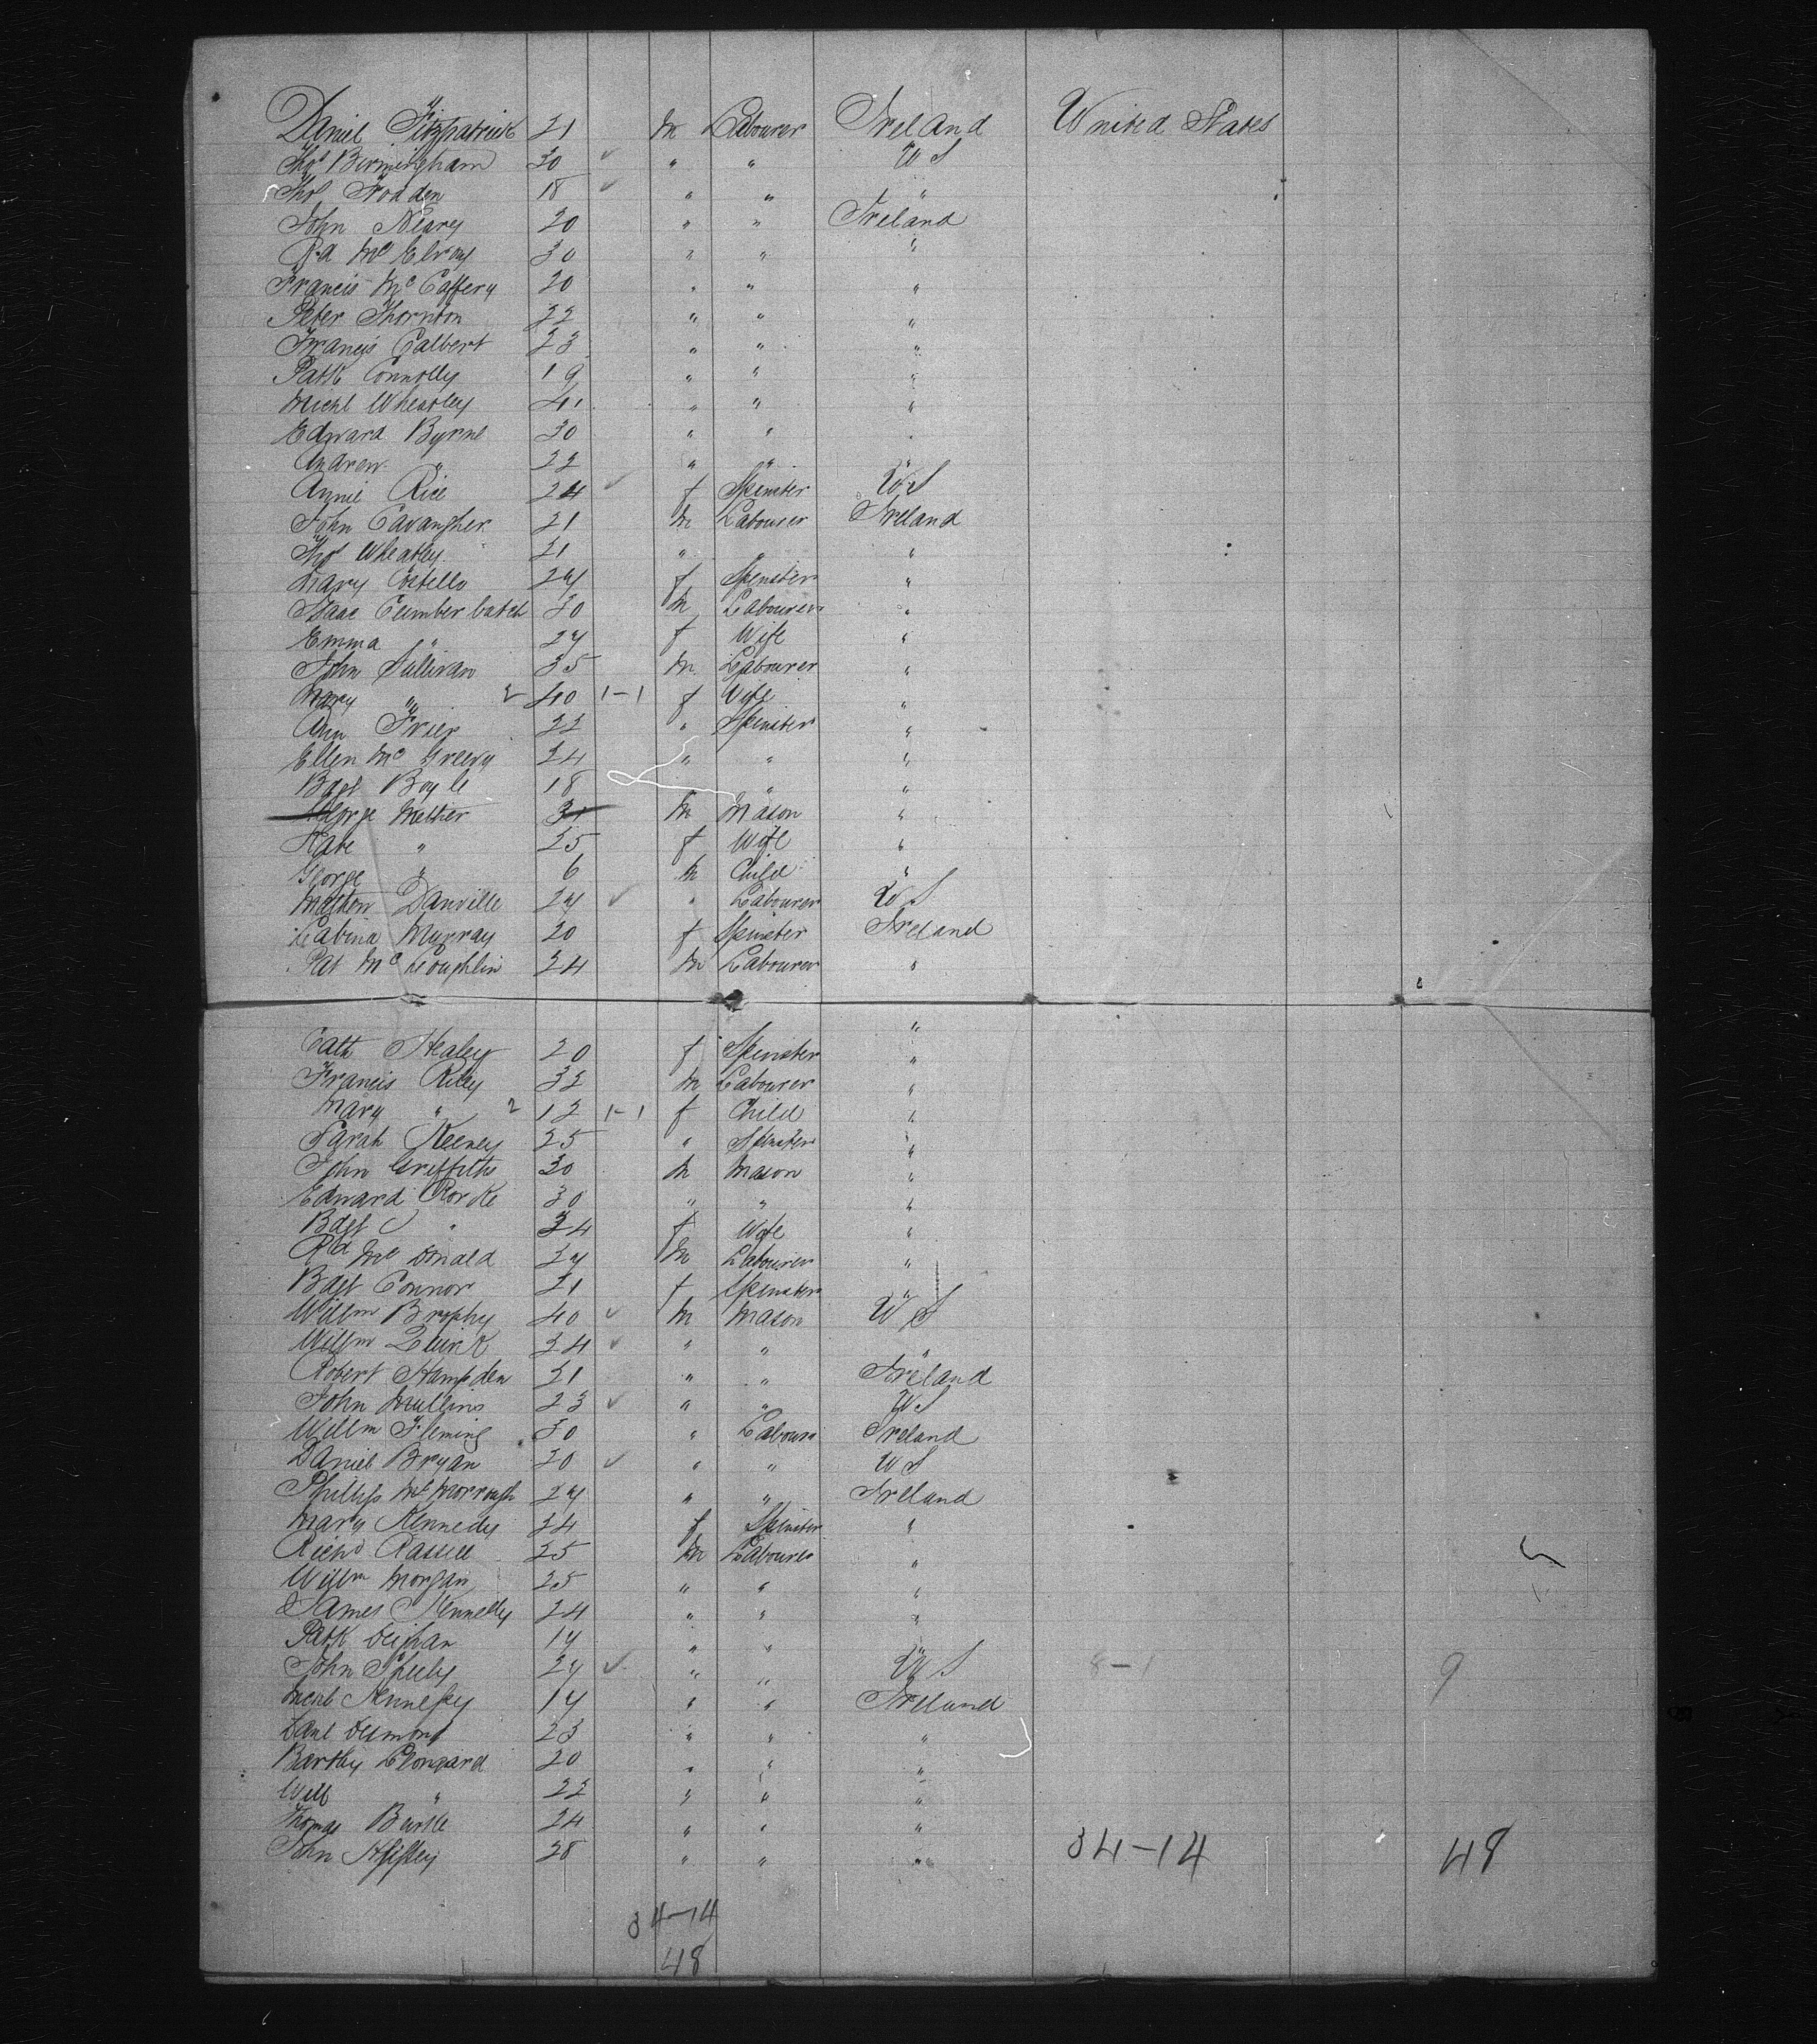 Daniel Fitzpatrick 21 m Labourer Ireland United States
Thos Birmingham 30 ✓ " " U S
Thos Frodden 18 ✓ " " "
John Neary 20 " " Ireland
Rd McElroy 30 " " "
Francis McCaffery 20 " " "
Peter Thornton 22 " " "
Francis Calbert 23 " " "
Patk Connolly 19 " " "
Michl Wheatley 41 " " "
Edward Byrne 30 " " "
Andrew " 22 " " "
Annie Rice 24 ✓ f Spinster U S
John Cavangher 21 m Labourer Ireland
Thos Wheatley 21 " " "
Mary Costello 24 f Spinster "
Isaac Cumberbatch 30 m Labourer "
Emma " 24 f Wife "
John Sullivan 35 m Labourer "
Mary " 2 40 1-1 f Wife "
Ann Frier 22 " Spinster "
Ellen McGreevy 24 " " "
Bgt Boyle 18 " " "
George Mether 31 m Mason "
Kate " 25 f Wife "
George " 6 m Child "
Matthew Danville 24 ✓ " Labourer U S
Sabina Murray 20 f Spinster Ireland
Pat McLoughlin 24 m Labourer "
Cath Healey 20 f Spinster "
Francis Riley 32 m Labourer "
Mary " 2 12 1-1 f Child "
Sarah Keeney 25 " Spinster "
John Griffiths 30 m Mason "
Edward Rorke 30 " " "
Bdgt " 34 f Wife "
Rd McDonald 24 m Labourer "
Bdgt Connor 21 f Spinster "
Willm Brophy 40 ✓ m Mason U S
Willm 24 ✓ " " "
Robert Hampden 21 " " Ireland
John Mullins 23 ✓ " " U S
Willm Fleming 30 " Labourer Ireland
Daniel Bryan 20 ✓ " " U S
Phillip McMorrough 24 " " Ireland
Mary Kennedy 24 f Spinster "
Richd Russell 25 m Labourer "
Willm Morgan 25 " " "
James Kennelly 24 " " "
Patk Deighan 19 " " "
John Sheehy 24 ✓ " " U S 8-1 9
Michl Hennessy 19 " " Ireland
Danl Desmond 23 " " "
Bartley 20 " " "
Will " 22 " " "
Thomas Burke 24 " " "
John 28 " " " 34-14 48
34-14
48